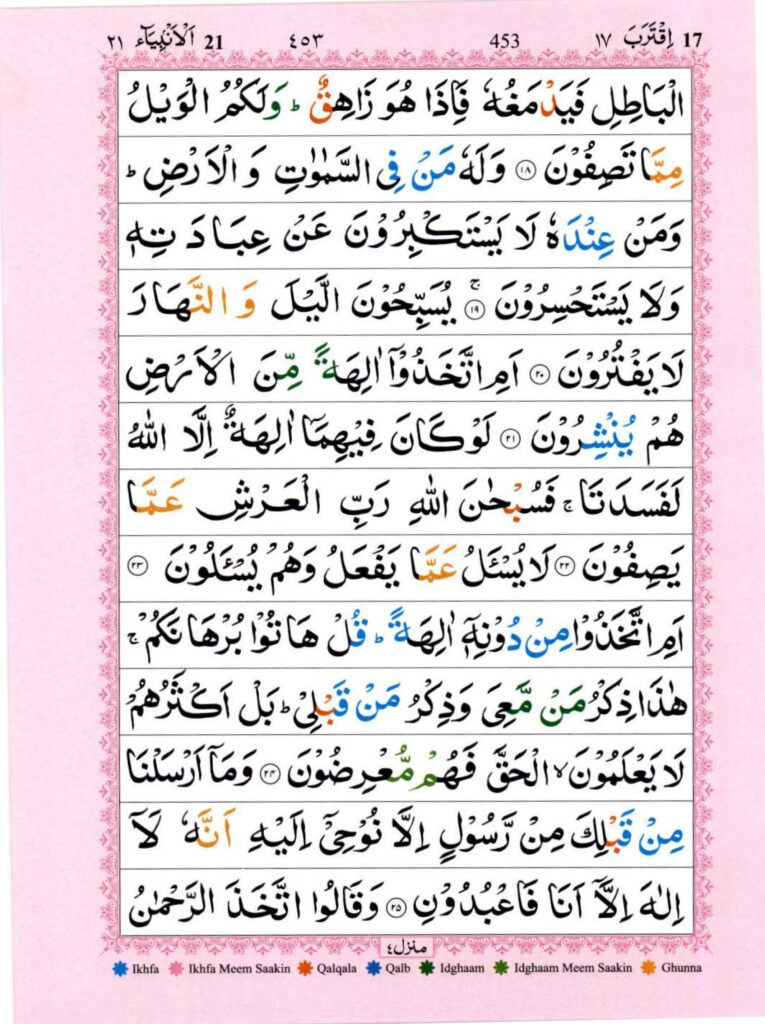 17 اِقْتَرَبَ ١٧ 453 ٤٥٣ 21 اَلْاَنْبِيَآء ٢١
الْبَاطِلِ فَيَدْمَغُهٗ فَاِذَا هُوَ زَاهِقٌ ؕ وَلَكُمُ الْوَيْلُ
مِمَّا تَصِفُوْنَ ۝۱۸ وَلَهٗ مَنْ فِي السَّمٰوٰتِ وَ الْاَرْضِ ؕ
وَمَنْ عِنْدَهٗ لَا يَسْتَكْبِرُوْنَ عَنْ عِبَادَتِهٖ
وَلَا يَسْتَحْسِرُوْنَ ۚ۝۱۹ يُسَبِّحُوْنَ الَّيْلَ وَ النَّهَارَ
لَا يَفْتُرُوْنَ ۝۲۰ اَمِ اتَّخَذُوْۤا اٰلِهَةً مِّنَ الْاَرْضِ
هُمْ يُنْشِرُوْنَ ۝۲۱ لَوْ كَانَ فِيْهِمَاۤ اٰلِهَةٌ اِلَّا اللّٰهُ
لَفَسَدَتَا ۚ فَسُبْحٰنَ اللّٰهِ رَبِّ الْعَرْشِ عَمَّا
يَصِفُوْنَ ۝۲۲ لَا يُسْـَٔلُ عَمَّا يَفْعَلُ وَهُمْ يُسْـَٔلُوْنَ ۝۲۳
اَمِ اتَّخَذُوْا مِنْ دُوْنِهٖۤ اٰلِهَةً ؕ قُلْ هَاتُوْا بُرْهَانَكُمْ ۚ
هٰذَا ذِكْرُ مَنْ مَّعِيَ وَذِكْرُ مَنْ قَبْلِيْ ؕ بَلْ اَكْثَرُهُمْ
لَا يَعْلَمُوْنَ ۙ الْحَقَّ فَهُمْ مُّعْرِضُوْنَ ۝۲۴ وَمَاۤ اَرْسَلْنَا
مِنْ قَبْلِكَ مِنْ رَّسُوْلٍ اِلَّا نُوْحِيْۤ اِلَيْهِ اَنَّهٗ لَاۤ
اِلٰهَ اِلَّاۤ اَنَا فَاعْبُدُوْنِ ۝۲۵ وَقَالُوا اتَّخَذَ الرَّحْمٰنُ
منزل ٤
Ikhfa Ikhfa Meem Saakin Qalqala Qalb Idghaam Idghaam Meem Saakin Ghunna